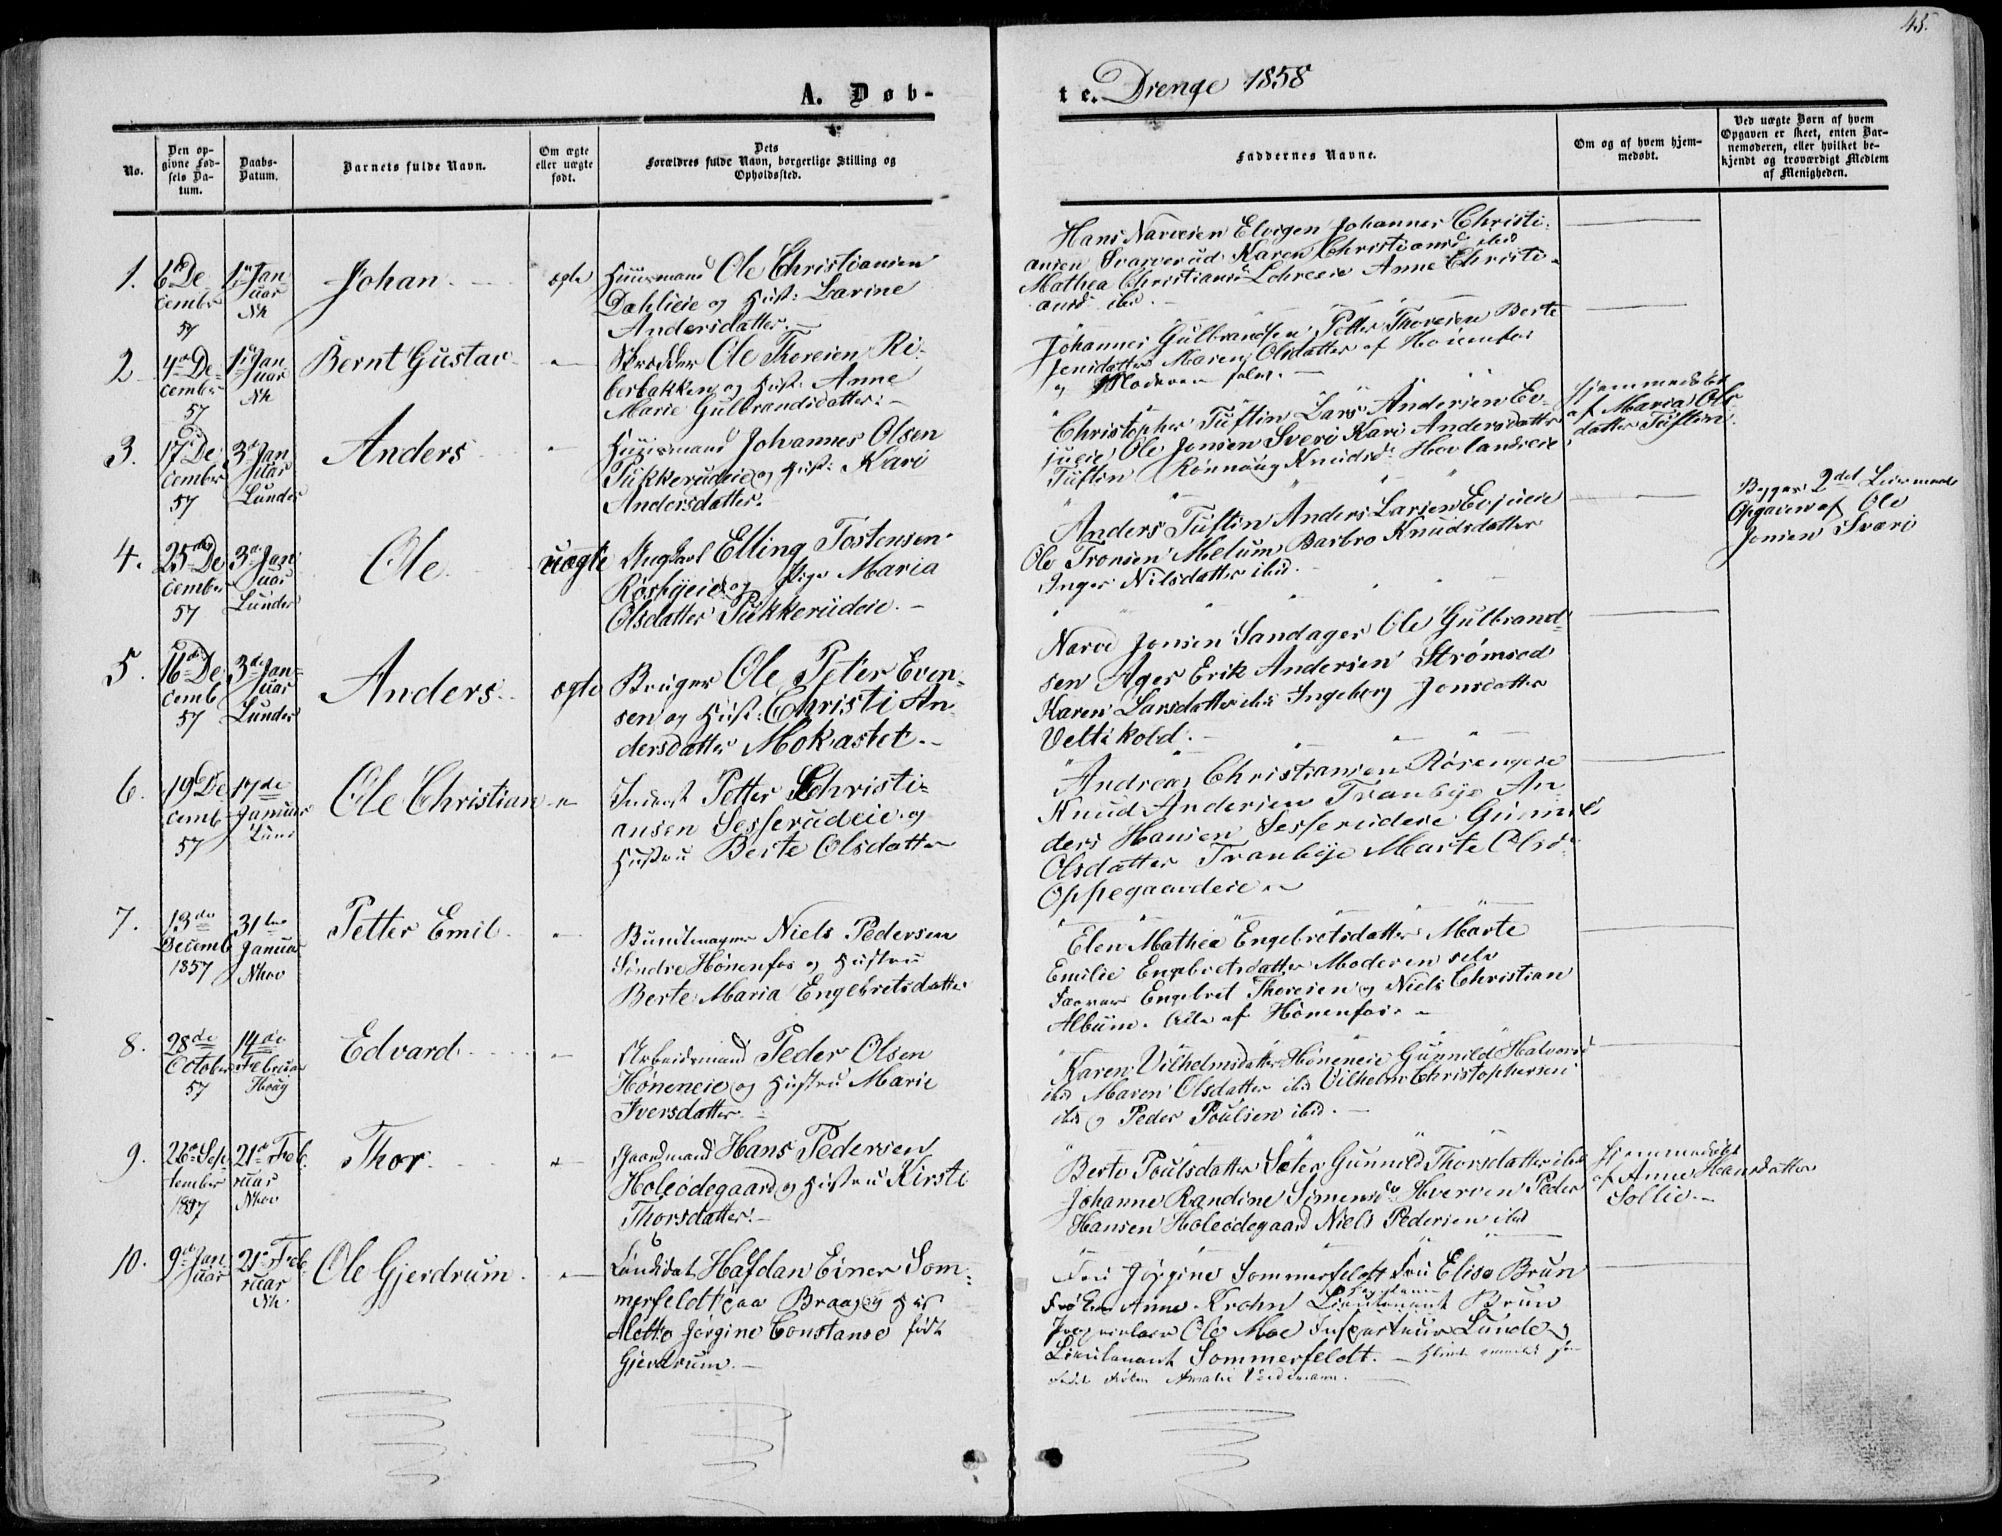 45.
A. Døb-
te. Drenge 1858
No.
Den op-
givne Fød-
sels Da-
tum.
Daabs-
Datum.
Barnets fulde Navn.
Om ægte
eller uægte
født.
Dets
Forældres fulde Navn, borgerlige Stilling og
Opholdssted.
Faddernes Navne.
Om og af hvem hjem-
medøbt.
Ved uægte Børn af hvem
Opgaven er skeet, enten Bar-
nemoderen, eller hvilket be-
kjendt og troværdigt Medlem
af Menigheden.
1.
6te De-
cember
57
1ste Jan-
uar
Nh
Johan.
ægte
Huusmand Ole Christiansen
Dahlieie og Hust: Larine
Andersdatter.
Hans Narvesen Elvigen Johannes Christi-
ansen Svarverud Karen Christiansd ibid
Mathea Christiansd Lehreeie Anne Christi-
ansd ibd.
2
4de De-
cember
57
1ste Jan
uar
Nh
Bernt Gustav
"
Skrædder Ole Thoresen Ri-
berbakken og Hust: Anne
Marie Gulbrandsdatter.
Johannes Gulbrandsen, Petter Thoresen Berte
Jensdatter Maren Olsdatter af Hønenfos
og Moderen selv.
3.
17de De
cember
57
3de Jan
uar
Lunder
Anders
"
Huusmand Johannes Olsen
Tukkerudeie og Hust: Kari
Andersdatter.
Christopher Tuftin Lars Andersen Ev-
jueie, Ole Jonsen Sveri Kari Andersdatter
Tuftin Rønnaug Knudsd: Hovlandseie
Hjemmedøbt
af Maria Ols-
datter Tuftin.
4.
25de De
cember
57
3de Jan
uar
Lunder
Ole
uægte
Ungkarl Elling Tostensen
Røsbyeie og Pige Maria
Olsdatter Tukkerudeie.
Anders Tuftin Anders Larsen Evjueie
Ole Tronsen Melum, Barbro Knudsdatter
Inger Nilsdatter ibid.
Begges 2det Leiermaal
Opgaven af Ole
Jonsen Sværi
5.
16de De
cemb
57
3de Jan-
uar
Lunder
Anders.
ægte
Bruger Ole Peter Even-
sen og Hust: Christi An-
dersdatter Mokastet.
Narve Jonsen Sandager Ole Gulbrand-
sen Ager Erik Andersen Strømsod
Karen Larsdatter ibid Ingeborg Jonsdatter
Veltikold.
6.
19 De
cemb
57
17de
Januar
Lund
Ole Christian
"
Inderst Petter Christi-
ansen Sesserudeie og
Hustru Berte Olsdatter
Andreas Christiansen Røsengeie
Knud Andersen Tranbye An-
ders Hansen Sesserudeie Gunnild
Olsdatter Tranbye Marte Olsd.
Oppegaardeie
7.
13de
Decemb
1857
31te
Januar
Nhov
Petter Emil.
"
Buntmager Niels Pedersen
Søndre Hønenfos og Hustru
Berte Maria Engebretsdatter
Elen Mathea Engebretsdatter Marte
Emilie Engebretsdatter Moderen selv
Farver Engebret Thoresen og Niels Christian
Album. Alle af Hønenfos.
8.
28de
October
57
14de
Februar
Houg
Edvard
"
Arbeidsmand Peder Olsen
Høneneie og Hustru Marie
Iversdatter
Karen Vilhelmsdatter Høneneie Gunnild Halvorsd
ibid Maren Olsdatter ibid Vilhelm Christophersen
ibid og Peder Poulsen ibid.
9.
22de Sep-
tember
1857
21de Feb-
ruar
Nhov
Thor.
"
Gaardmand Hans Pedersen
Holeødegaard og Hustru Kirsti
Thorsdatter.
Berte Poulsdatter Sæter Gunnild Thorsdatter ibid
Johanne Randine Simensd Hverven Peder
Hansen Holeødegaard Niels Pedersen ibid
Hjemmedøbt
af Anne Hansdatter
Sollie.
10.
9de Jan-
uar
21de Feb-
ruar
Nh.
Ole Gjerdrum.
"
Candidat Hafdan Einer Som-
merfeldt paa Braag og Hus
Aletto Jørgine Constanse født
Gjerdrum.
Fru Jørgine Sommerfeldt Fru Elise Brun
Frøken Anne Krohn Lieutenant Brun
Proprietær Ole Moe Inspecteur Lunde og
Lieutenant Sommerfeldt.